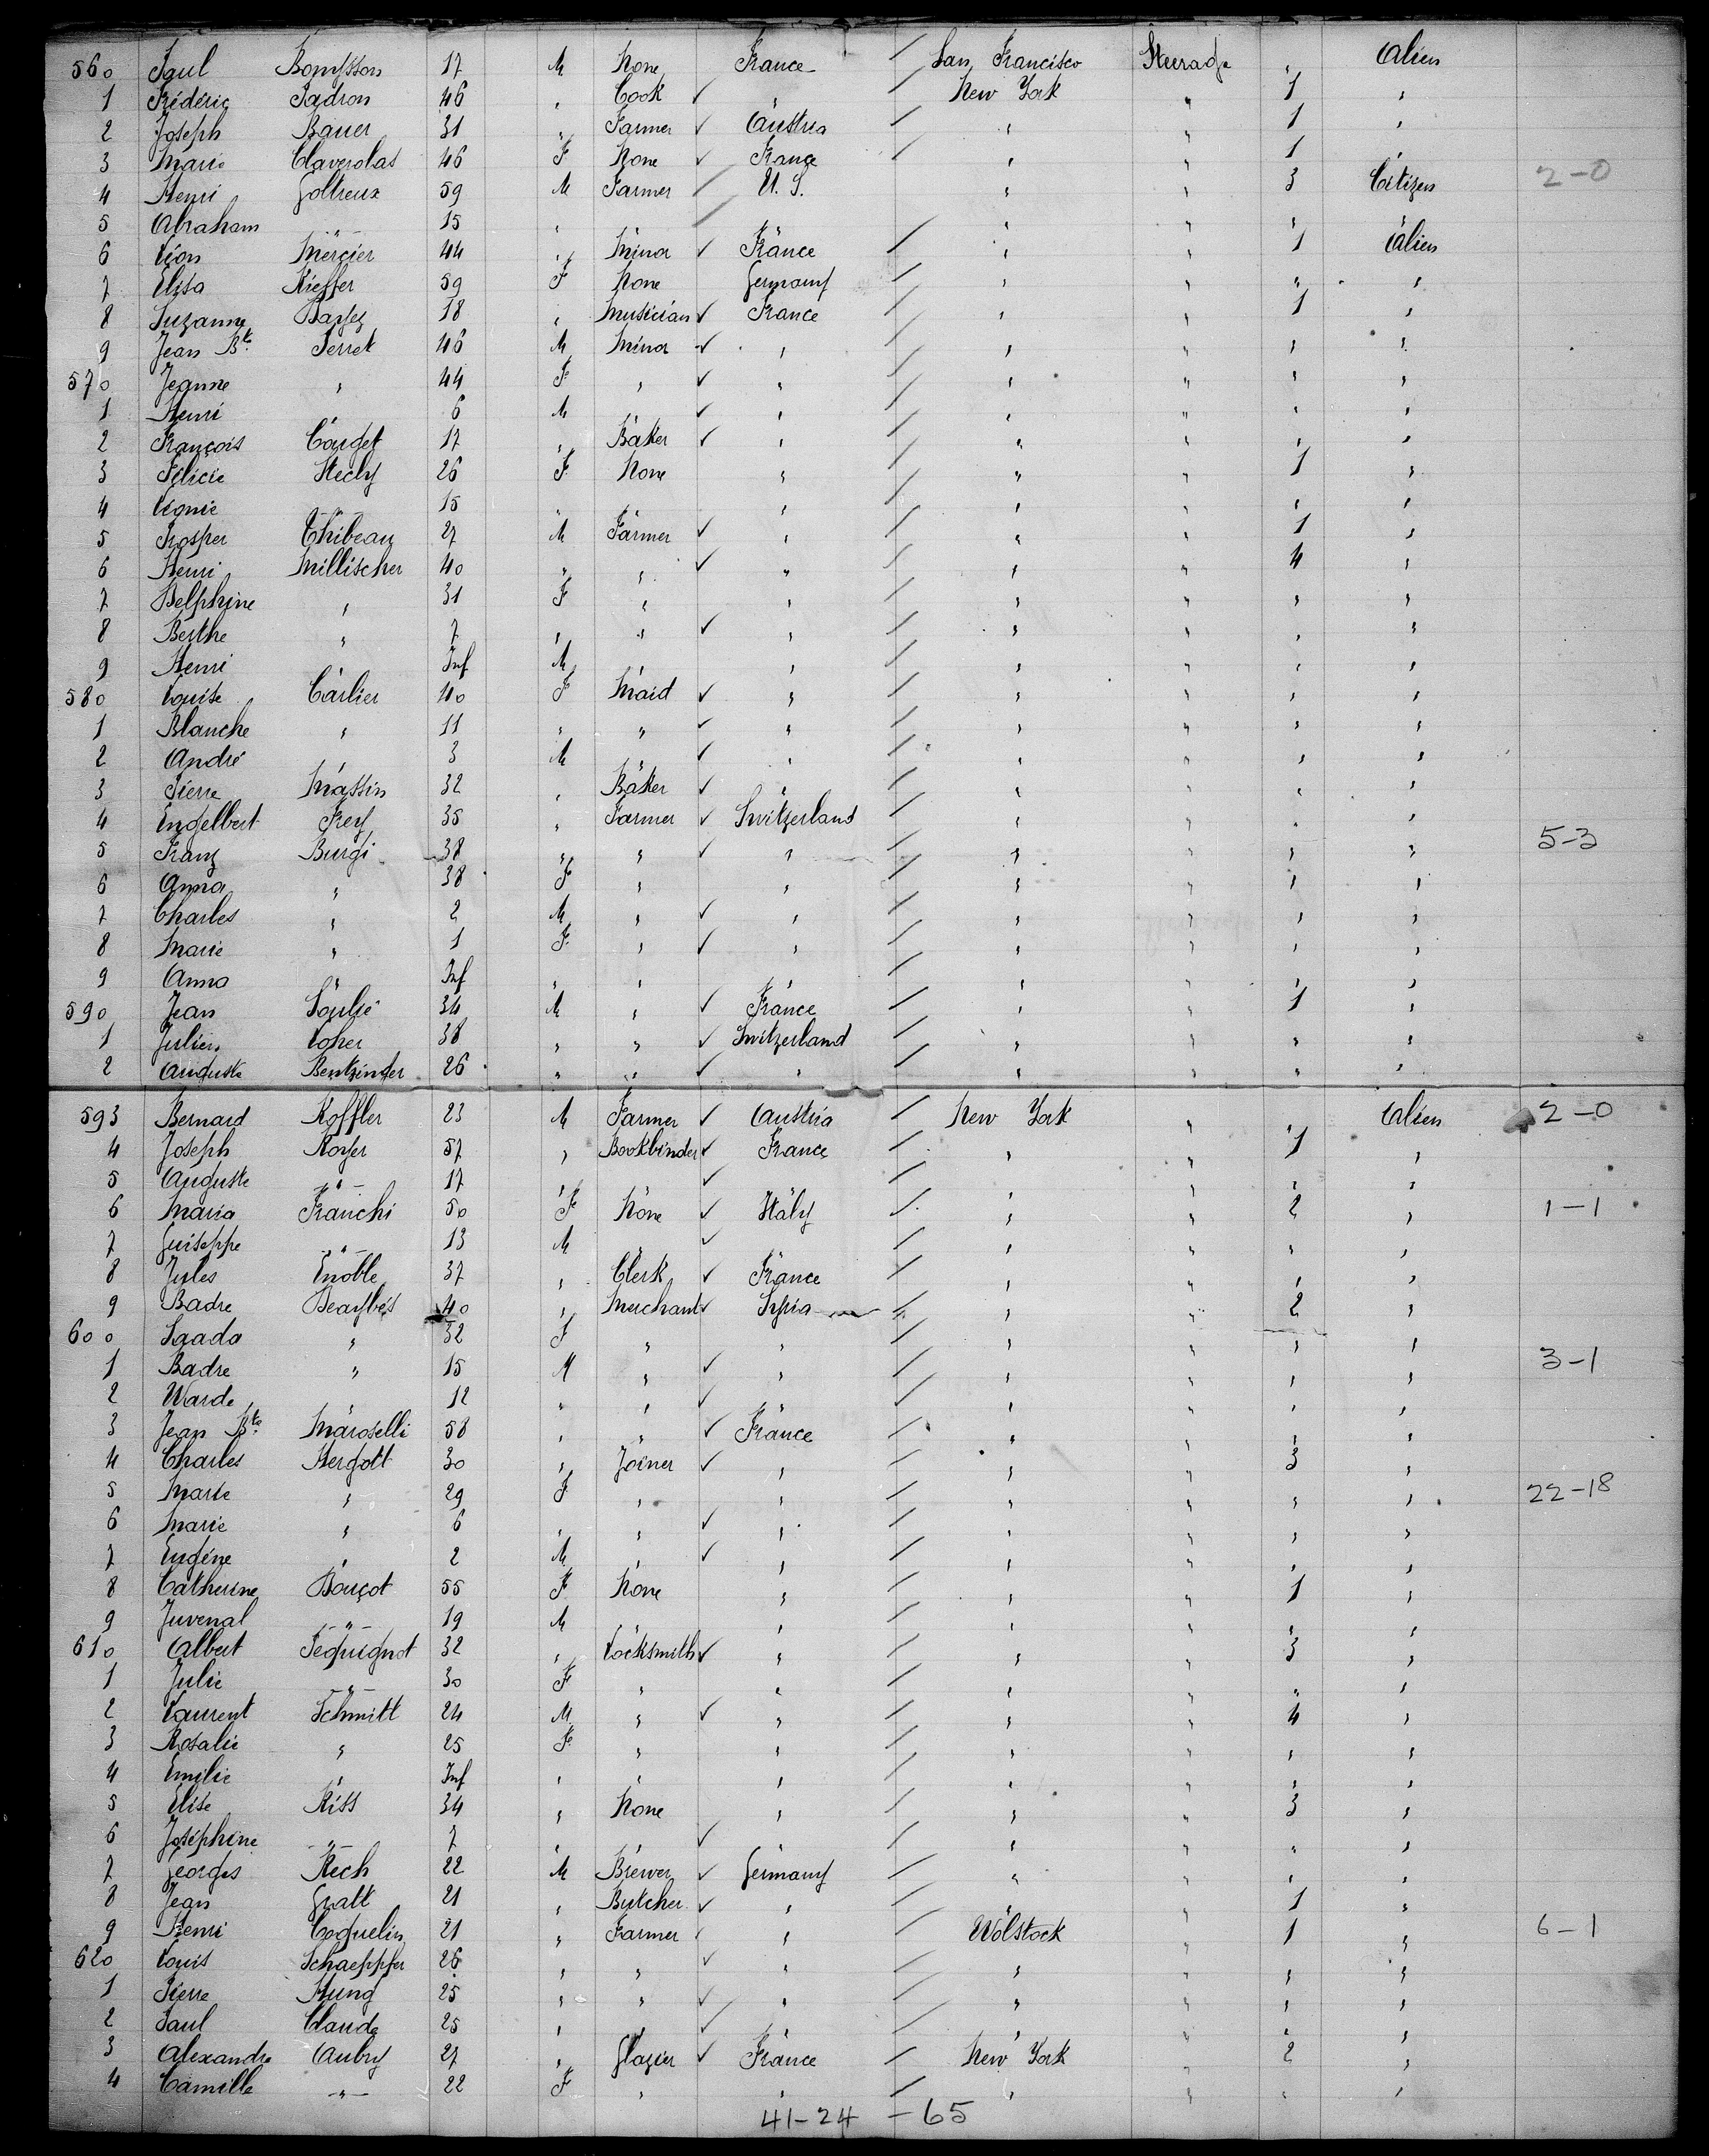 560 Paul Bompsson 17 M None France / San Francisco Steerage " Alien
1 Frédéric Padron 46 " Cook ✓ " / New York " 1 "
2 Joseph Bauer 31 " Farmer ✓ Austria / " " 1 "
3 Marie Claverolas 46 F None ✓ France / " " 1 "
4 Henri Goltreux 59 M Farmer / U. S. " " 3 Citizen 2-0
5 Abraham -"- 15 " " / " " " " "
6 Léon Mercier 44 " Minor ✓ France / " " 1 Alien
7 Elisa Kieffer 59 F None Germany / " " " "
8 Suzanne 18 " Musician ✓ France / " " 1 "
9 Jean Bte Perret 46 M Minor ✓ " / " " " "
570 Jeanne " 44 F " ✓ " / " " " "
1 Henri " 6 M " ✓ " / " " " "
2 François Couget 17 " Baker ✓ " / " " " "
3 Félicie Stechy 26 F None " / " " 1 "
4 Léonie -"- 15 " " " / " " " "
5 Prosper Thibeau 27 M Farmer ✓ " / " " 1 "
6 Henri Millischer 40 " " ✓ " / " " 4 "
7 Delphine " 31 F " " / " " " "
8 Berthe " 7 " " ✓ " / " " " "
9 Henri " Inf M " " / " " " "
580 Louise Carlier 40 F Maid ✓ " / " " " "
1 Blanche " 11 " " ✓ " / " " " "
2 André " 3 M " ✓ " / " " " "
3 Pierre Massin 32 " Baker ✓ " / " " " "
4 Engelbert Frey 35 " Farmer ✓ Switzerland / " " " "
5 Franz Burgi 38 " " ✓ " / " " " " 5-3
6 Anna " 38 F " " / " " " "
7 Charles " 2 M " ✓ " / " " " "
8 Marie " 1 F " ✓ " / " " " "
9 Anna " Inf " " " / " " " "
590 Jean Soulié 34 M " ✓ France / " " 1 "
1 Julien Loher 38 " " ✓ Switzerland / " " " "
2 Auguste Bentzinger 26 " " ✓ " / " " " "
593 Bernard Koffler 23 M Farmer ✓ Austria / New York " " Alien 2-0
4 Joseph Royer 57 " Bookbinder ✓ France / " " 1 "
5 Auguste -"- 17 " " ✓ " / " " " "
6 Maria Franchi 50 F None ✓ Italy / " " 2 " 1-1
7 Guiseppe -"- 13 M " ✓ " / " " " "
8 Jules Enoble 37 " Clerk ✓ France / " " " "
9 Badre 40 " Merchant ✓ Syria / " " 2 "
600 Saada " 32 F " " / " " " "
1 Badre " 15 M " ✓ " / " " " " 3-1
2 Warde " 12 " " ✓ " / " " " "
3 Jean Bte Maroselli 58 " " ✓ France / " " " "
4 Charles Hergott 30 " Joiner ✓ " / " " 3 "
5 Marie " 29 F " " / " " " " 22-18
6 Marie " 6 " " ✓ " / " " " "
7 Eugène " 2 M " ✓ " / " " " "
8 Catherine Bouçot 55 F None " / " " 1 "
9 Juvenal -"- 19 M " " / " " " "
610 Albert Pequignot 32 " Locksmith ✓ " / " " 3 "
1 Julie -"- 30 F " " / " " " "
2 Laurent Schmitt 24 M " ✓ " / " " 4 "
3 Rosalie " 25 F " " / " " " "
4 Emilie " Inf " " " / " " " "
5 Elise Kiss 34 " None " / " " 3 "
6 Joséphine -"- 7 " " ✓ " / " " " "
7 Georges Rech 22 M Brewer ✓ Germany / " " " "
8 Jean Gratt 21 " Butcher ✓ " / " " 1 "
9 Henri Coquelin 21 " Farmer ✓ " / Wolstock " 1 " 6-1
620 Louis Schaeppfer 26 " " ✓ " / " " " "
1 Pierre Kung 25 " " ✓ " / " " " "
2 Paul Claude 25 " " ✓ " / " " " "
3 Alexandre Aubry 27 " Glazier ✓ France / New York " 2 "
4 Camille -"- 22 F " " / " " " "
41-24 -65